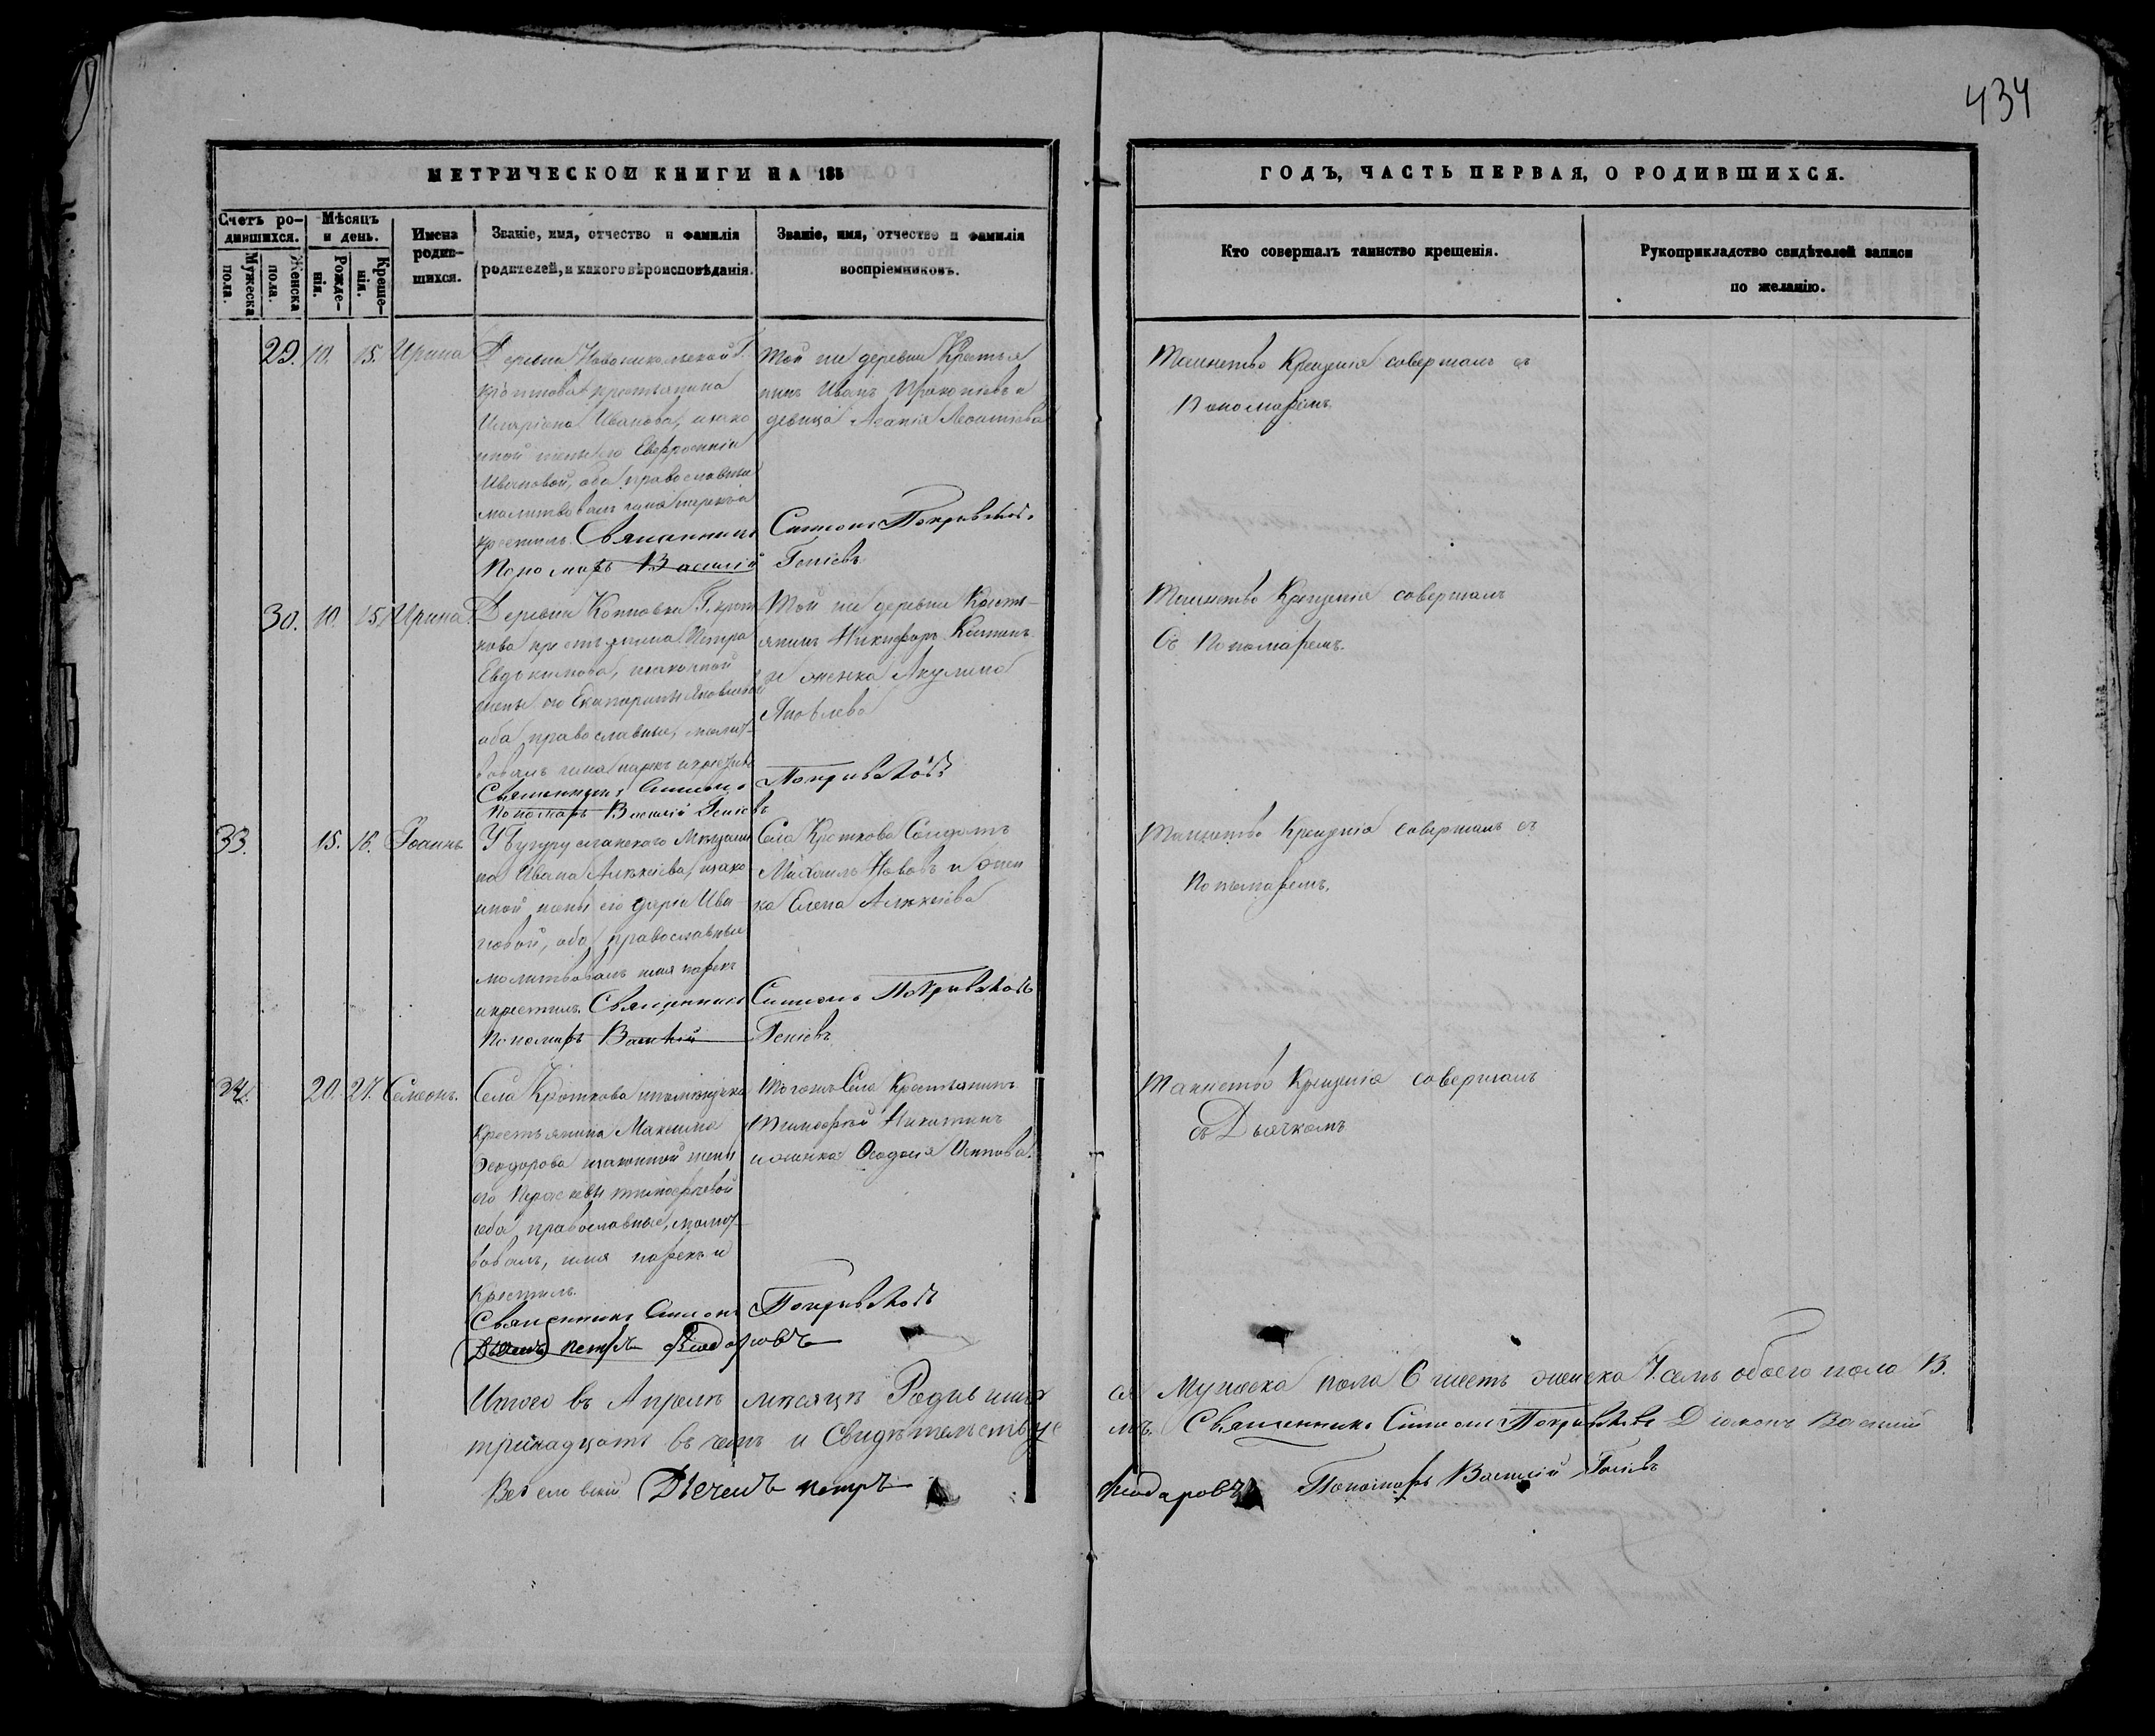 434
МЕТРИЧЕСКОЙ КНИГИ НА 185
ГОДЪ, ЧАСТЬ ПЕРВАЯ, О РОДИВШИХСЯ.
Счетъ ро-
дившихся.
Мужеска
пола.
Женска
пола.
Мѣсяцъ
и день.
Рожде-
нія.
Креще-
нія.
Имена
родив-
шихся.
Званіе, имя, отчество и фамилія
родителей, и какого вѣроисповѣданія.
Званіе, имя, отчество и фамилія
воспріемниковъ.
Кто совершалъ таинство крещенія.
Рукоприкладство свидѣтелей записи
по желанію.
29. 10. 15. Ирина
Деревни Новоникольской Г.
Кроткова крестьянина
Иларіона Ивановa, и закон
ной жены его Евфросиніи
Ивановой, оба православные
молитвовалъ имя нарекъ и
крестилъ. Священникъ
Пономарь Василій
Той же деревни Крестья
нинъ Иванъ Прокопіевъ и
девица Агапія Леонтіева
Симеонъ Покрываловъ
Геніевъ
Таинство Крещенія совершалъ съ
Пономаремъ.
30. 10. 15. Ирина
Деревни Г. Крот
кова крестьянина Петра
Евдокимова, и законной
жены его Екатерины Яковлевой
оба православные, молит
вовалъ имя нарекъ и крестилъ
Священникъ Симеонъ
Пономарь Василій Геніевъ
Той же деревни Кресть-
янинъ Никифоръ
и женка Акулина
Яковлева
Покрываловъ
Таинство Крещенія совершалъ
Съ Пономаремъ.
33. 15. 16. Іоаннъ
У Бугурусланскаго Мѣщани
на Ивана Алексѣева, и закон
ной жены его Дарьи Ива
новой, оба православные
молитвовалъ имя нарекъ
и крестилъ. Священникъ
Пономарь Василій
Села Кроткова Солдатъ
Михаилъ и жен
ка Елена Алексѣева
Симеонъ Покрываловъ
Геніевъ
Таинство Крещенія совершалъ съ
Пономаремъ.
34. 20. 21. Симеонъ.
Села Кроткова
Крестьянина Максима
Ѳеодорова и законной жены
его Параскевы Тимофѣевой
оба православные, молит
вовалъ, имя нарекъ и
Крестилъ.
Священникъ Симеонъ
Дьячекъ Петръ Ѳеодоровъ
Того же Села Крестьянинъ
Тимофѣй Никитинъ
и женка Ѳеодосія
Покрываловъ
Таинство Крещенія совершалъ
съ Дьячкомъ
Итого въ Апрелѣ месяцѣ Родивших
ся Мужеска пола 6 шесть женска 7. семь обоего пола 13.
тринадцать въ чемъ и Свидѣтельствуе
мъ. Священникъ Симеонъ Покрываловъ Діаконъ Василій
Веселовскій Дьячекъ Петръ
Ѳеодоровъ Пономарь Василій Геніевъ